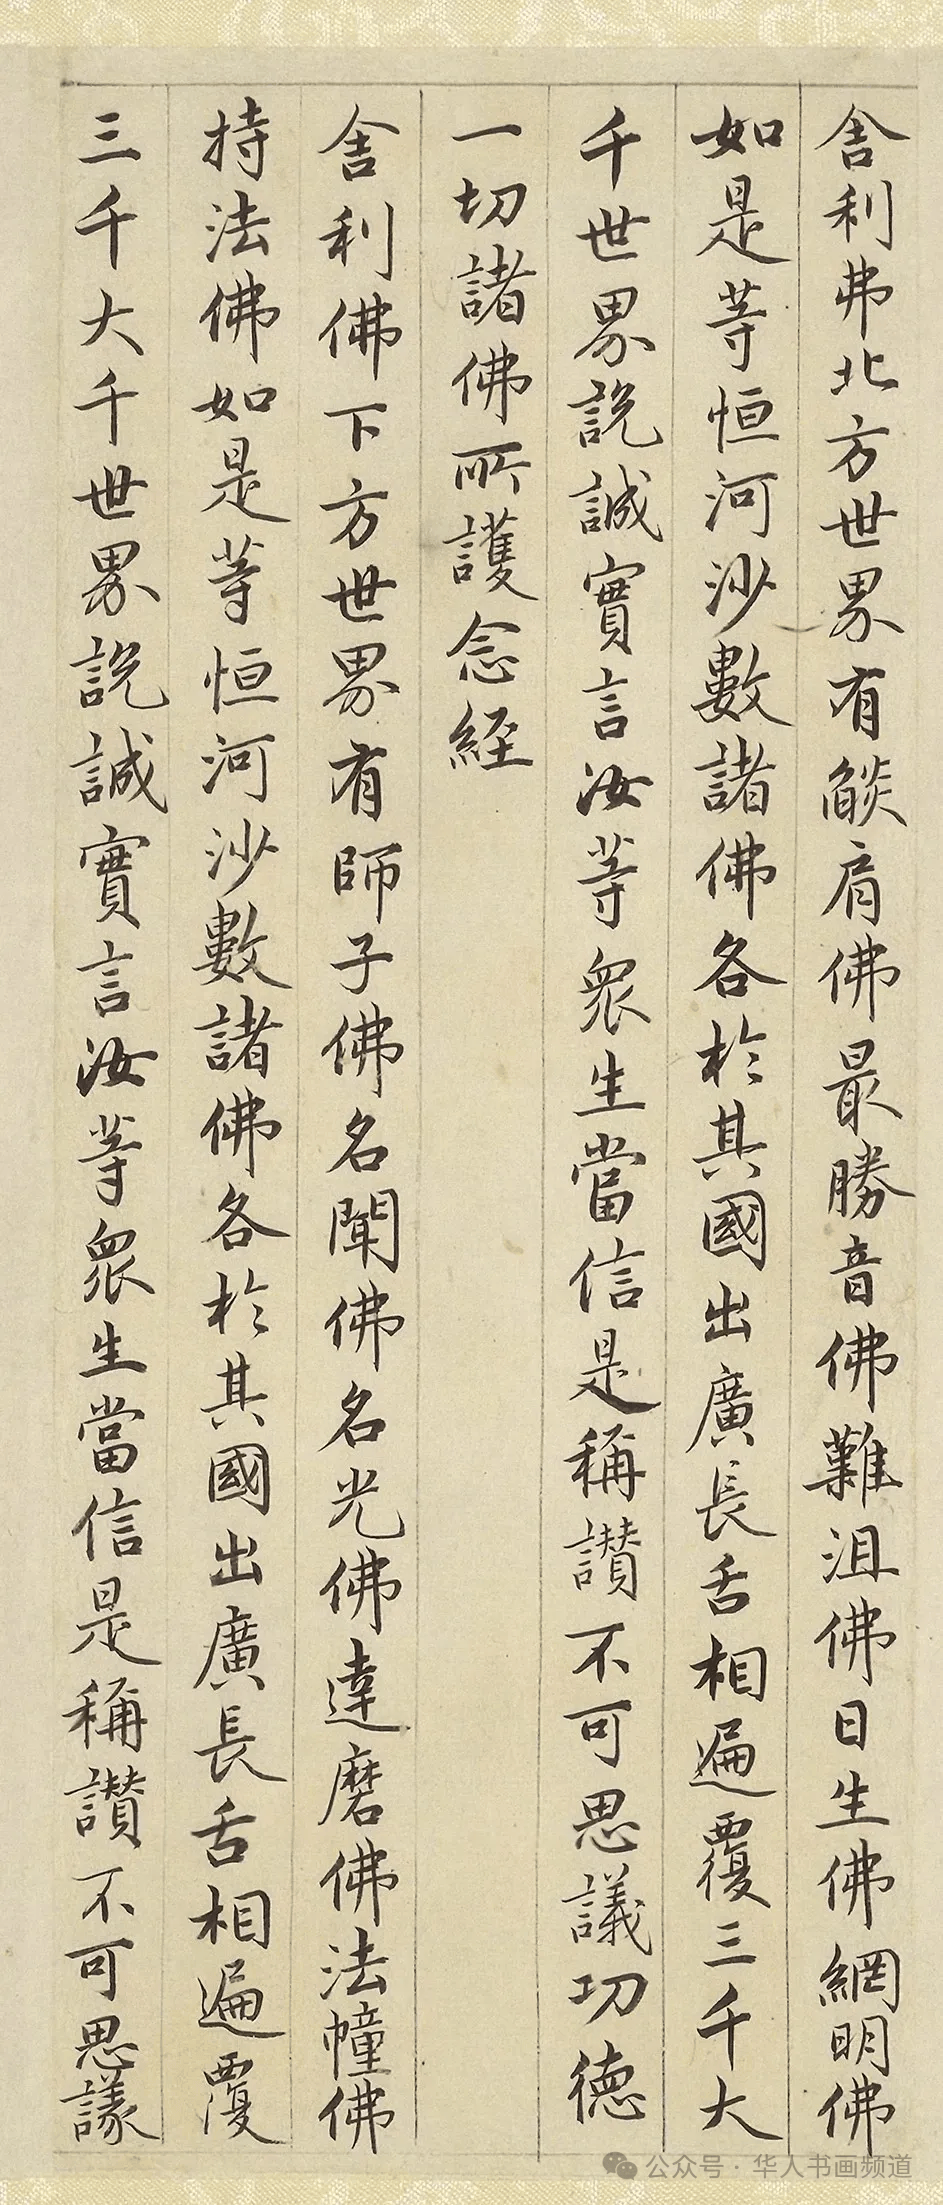 舎利弗北方世界有燄肩佛最勝音佛難沮佛日生佛網明佛
如是等恒河沙數諸佛各於其國出廣長舌相遍覆三千大
千世界説誠實言汝等衆生當信是稱讃不可思議功德
一切諸佛所護念經
舎利佛下方世界有師子佛名聞佛名光佛達磨佛法幢佛
持法佛如是等恒河沙數諸佛各於其國出廣長舌相遍覆
三千大千世界説誠實言汝等衆生當信是稱讃不可思議
公众号·华人书画频道